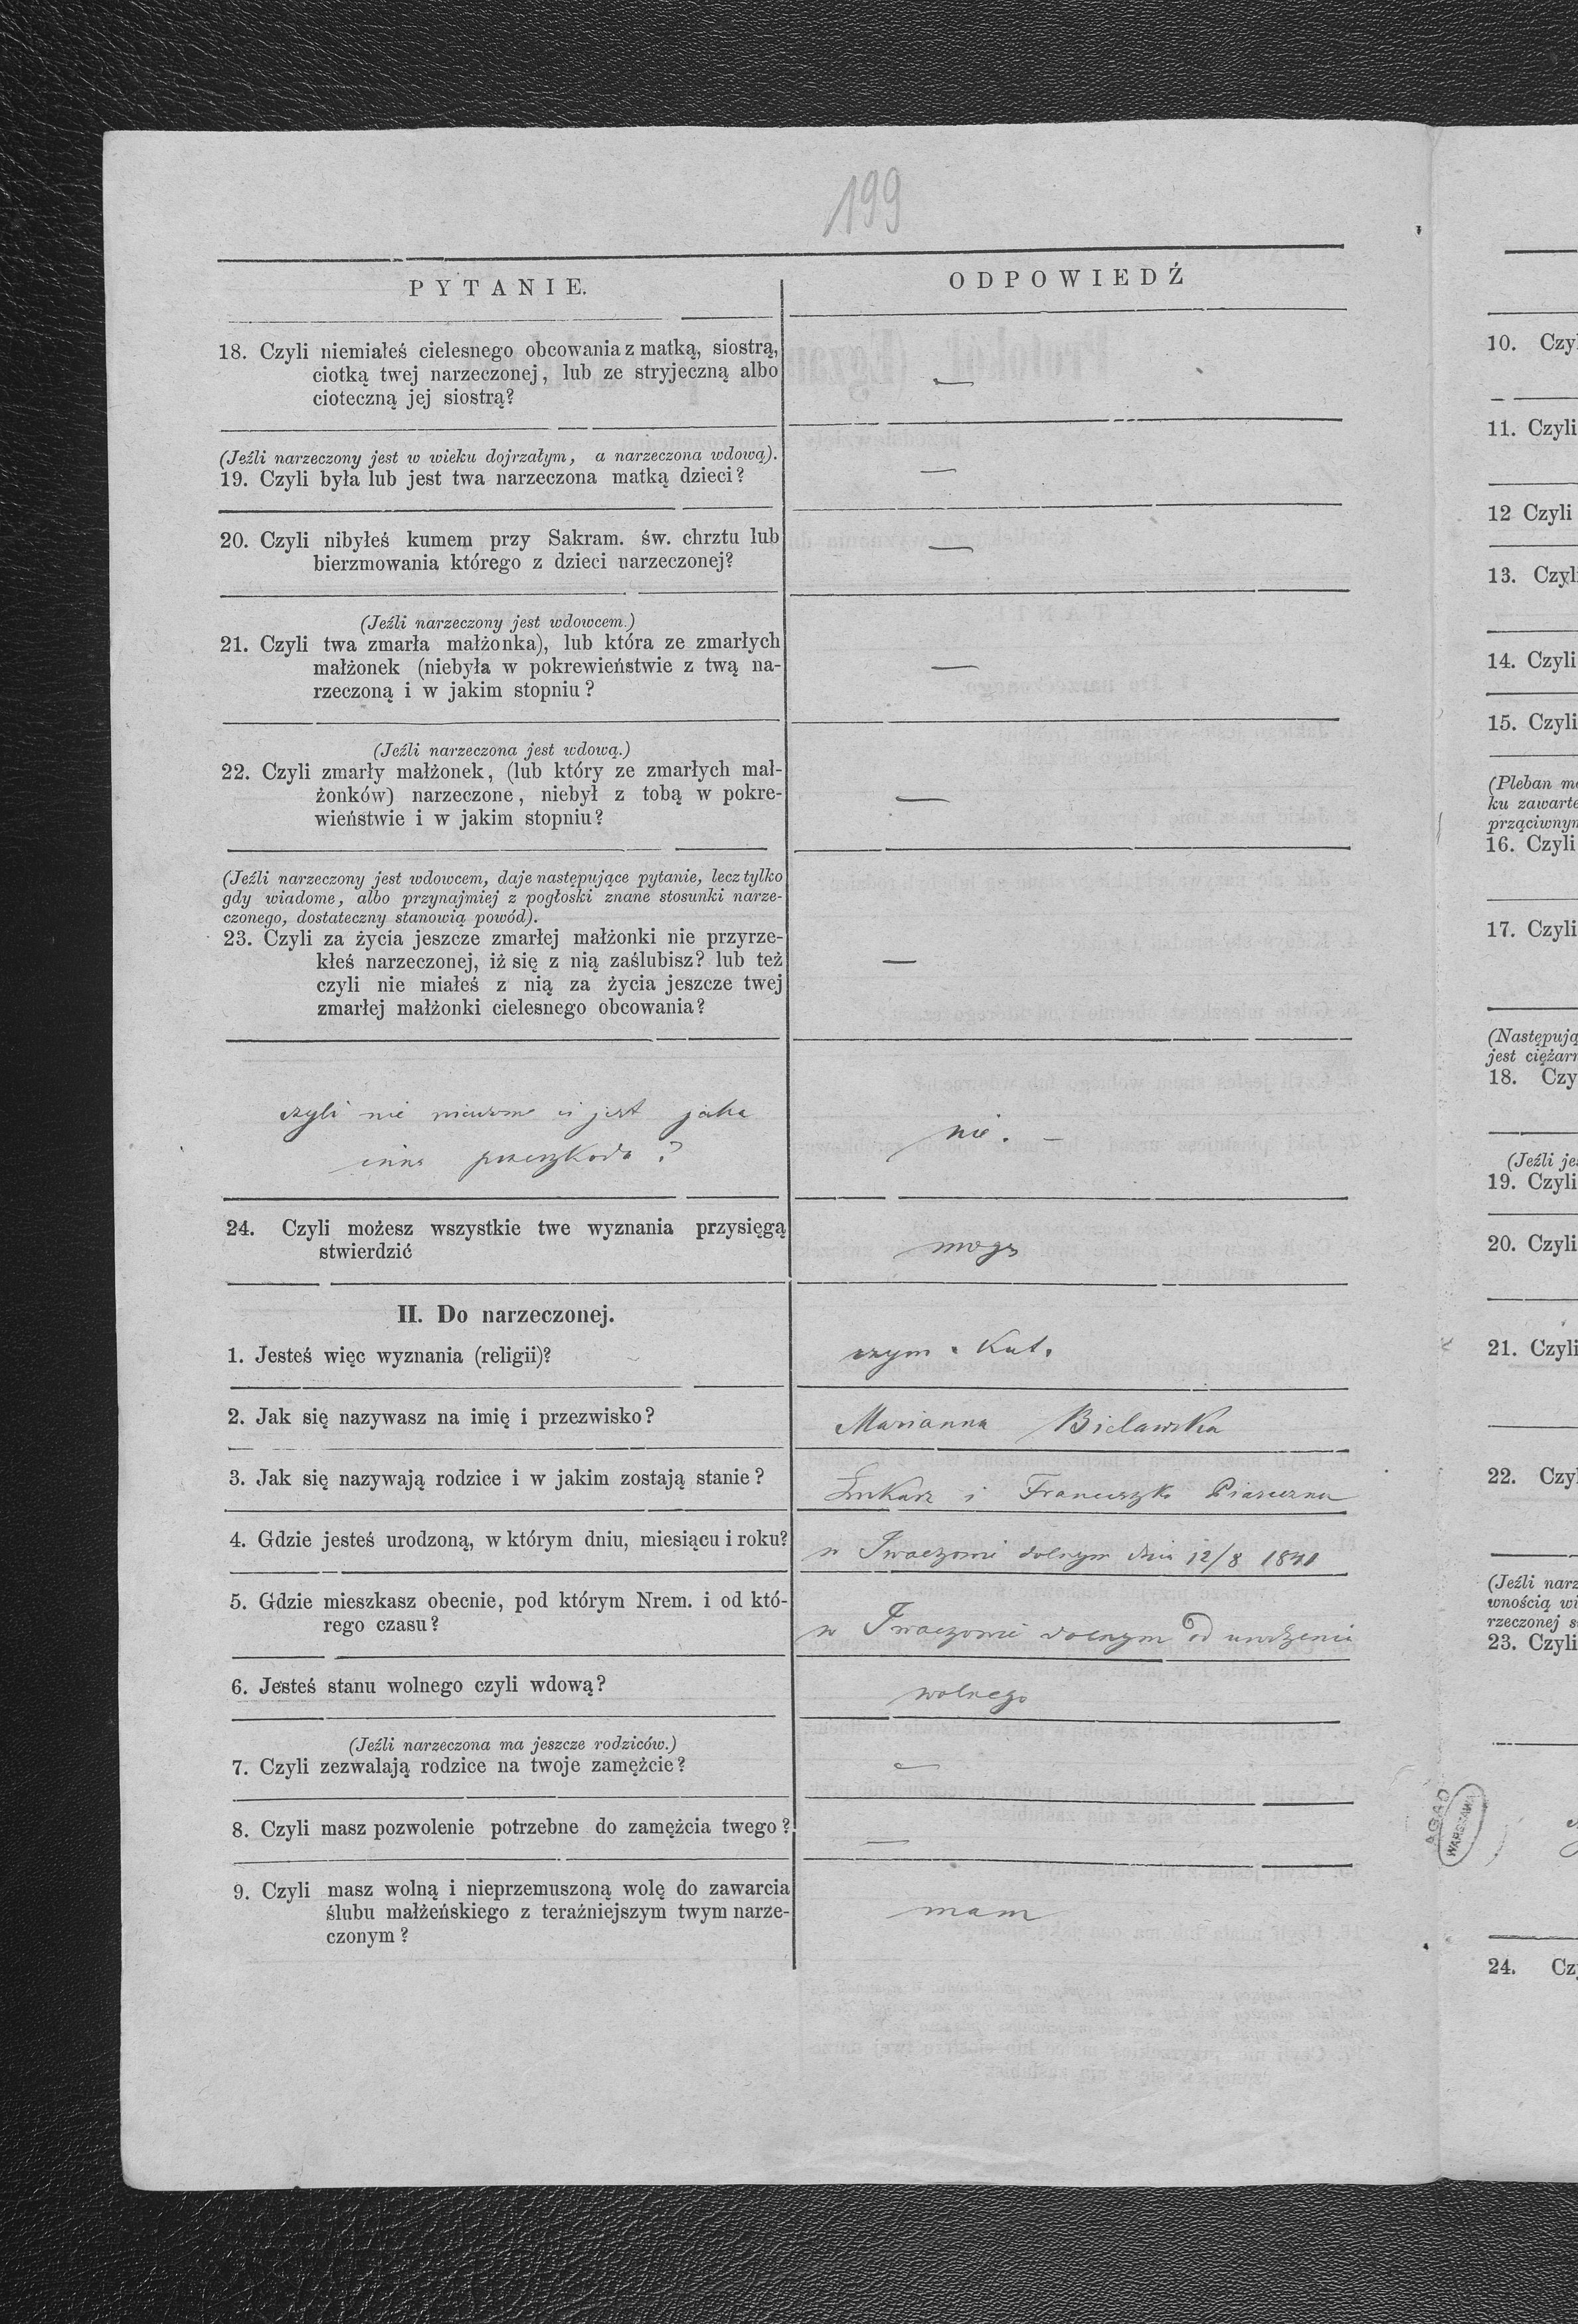 199
PYTANIE.
ODPOWIEDŹ
18. Czyli niemiałeś cielesnego obcowania z matką, siostrą,
ciotką twej narzeczonej, lub ze stryjeczną albo
cioteczną jej siostrą?
—
(Jeźli narzeczony jest w wieku dojrzałym, a narzeczona wdową).
19. Czyli była lub jest twa narzeczona matką dzieci?
—
20. Czyli nibyłeś kumem przy Sakram. św. chrztu lub
bierzmowania którego z dzieci narzeczonej?
—
(Jeźli narzeczony jest wdowcem.)
21. Czyli twa zmarła małżonka), lub która ze zmarłych
małżonek (niebyła w pokrewieństwie z twą na-
rzeczoną i w jakim stopniu?
—
(Jeźli narzeczona jest wdową.)
22. Czyli zmarły małżonek, (lub który ze zmarłych mał-
żonków) narzeczone, niebył z tobą w pokre-
wieństwie i w jakim stopniu?
—
(Jeźli narzeczony jest wdowcem, daje następujące pytanie, lecz tylko
gdy wiadome, albo przynajmiej z pogłoski znane stosunki narze-
czonego, dostateczny stanowią powód).
23. Czyli za życia jeszcze zmarłej małżonki nie przyrze-
kłeś narzeczonej, iż się z nią zaślubisz? lub też
czyli nie miałeś z nią za życia jeszcze twej
zmarłej małżonki cielesnego obcowania?
—
czyli nie jest jaka
inna przeszkoda?
nie. —
24. Czyli możesz wszystkie twe wyznania przysięgą
stwierdzić
mogę
II. Do narzeczonej.
1. Jesteś więc wyznania (religii)?
rzym. Kat.
2. Jak się nazywasz na imię i przezwisko?
Marianna Bielawska
3. Jak się nazywają rodzice i w jakim zostają stanie?
Łukasz i Franciszka
4. Gdzie jesteś urodzoną, w którym dniu, miesiącu i roku?
w dolnym dnia 12/8
5. Gdzie mieszkasz obecnie, pod którym Nrem. i od któ-
rego czasu?
w dolnym od urodzenia
6. Jesteś stanu wolnego czyli wdową?
wolnego
(Jeźli narzeczona ma jeszcze rodziców.)
7. Czyli zezwalają rodzice na twoje zamężcie?
—
8. Czyli masz pozwolenie potrzebne do zamężcia twego?
—
9. Czyli masz wolną i nieprzemuszoną wolę do zawarcia
ślubu małżeńskiego z teraźniejszym twym narze-
czonym?
mam
10. Czyl
11. Czyli
12 Czyli
13. Czyli
14. Czyli
15. Czyli
(Pleban m
ku zawarte
prząciwnym
16. Czyli
17. Czyli
(Następują
jest ciężar
18. Czy
(Jeźli je
19. Czyli
20. Czyli
21. Czyli
22. Czyl
(Jeźli narz
wnością wi
rzeczonej s
23. Czyli
AGAD
WARSZAWA
24. Cz